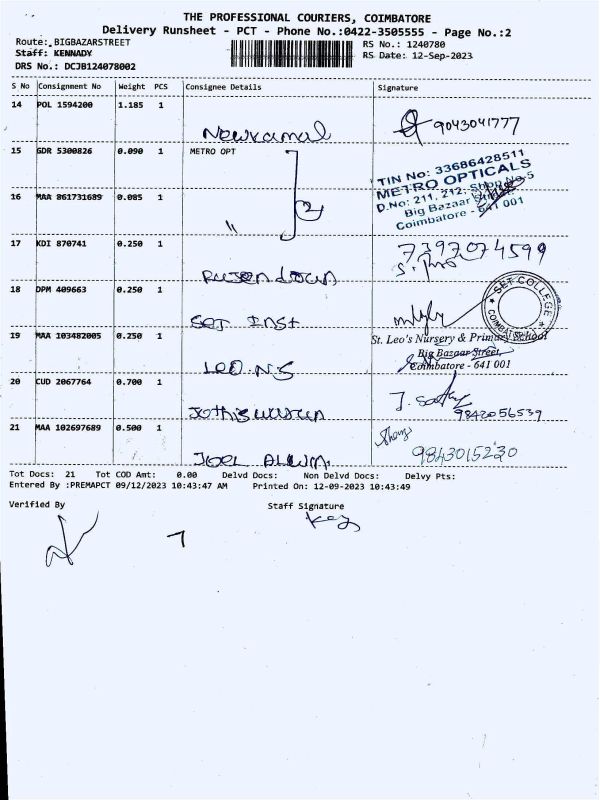 THE PROFESSIONAL COURIERS, COIMBATORE
Delivery Runsheet - PCT - Phone No.:0422-3505555 - Page No.:2
Route: BIGBAZARSTREET
RS No.: 1240780
Staff: KENNADY
RS Date: 12-Sep-2023
DRS No.: DCJB124078002
S No Consignment No Weight PCS Consignee Details Signature
14 POL 1594200 1.185 1
Newkamal 9043041777
15 GDR 5300826 0.090 1 METRO OPT
TIN No: 33686428511
METRO OPTICALS
D.No: 211, 212, Shop No.5
Big Bazaar Street,
Coimbatore - 641 001
16 MAA 861731689 0.085 1
" 2
17 KDI 870741 0.250 1
7397074599
18 DPM 409663 0.250 1
SET Inst
SET COLLEGE
COIMBATORE
19 MAA 103482005 0.250 1
St. Leo's Nursery & Primary School
Big Bazaar Street,
Coimbatore - 641 001
LEO.N.S
20 CUD 2067764 0.700 1
9842056539
21 MAA 102697689 0.500 1
9843015230
JOEL ALUM.
Tot Docs: 21 Tot COD Amt: 0.00 Delvd Docs: Non Delvd Docs: Delvy Pts:
Entered By :PREMAPCT 09/12/2023 10:43:47 AM Printed On: 12-09-2023 10:43:49
Verified By Staff Signature
7